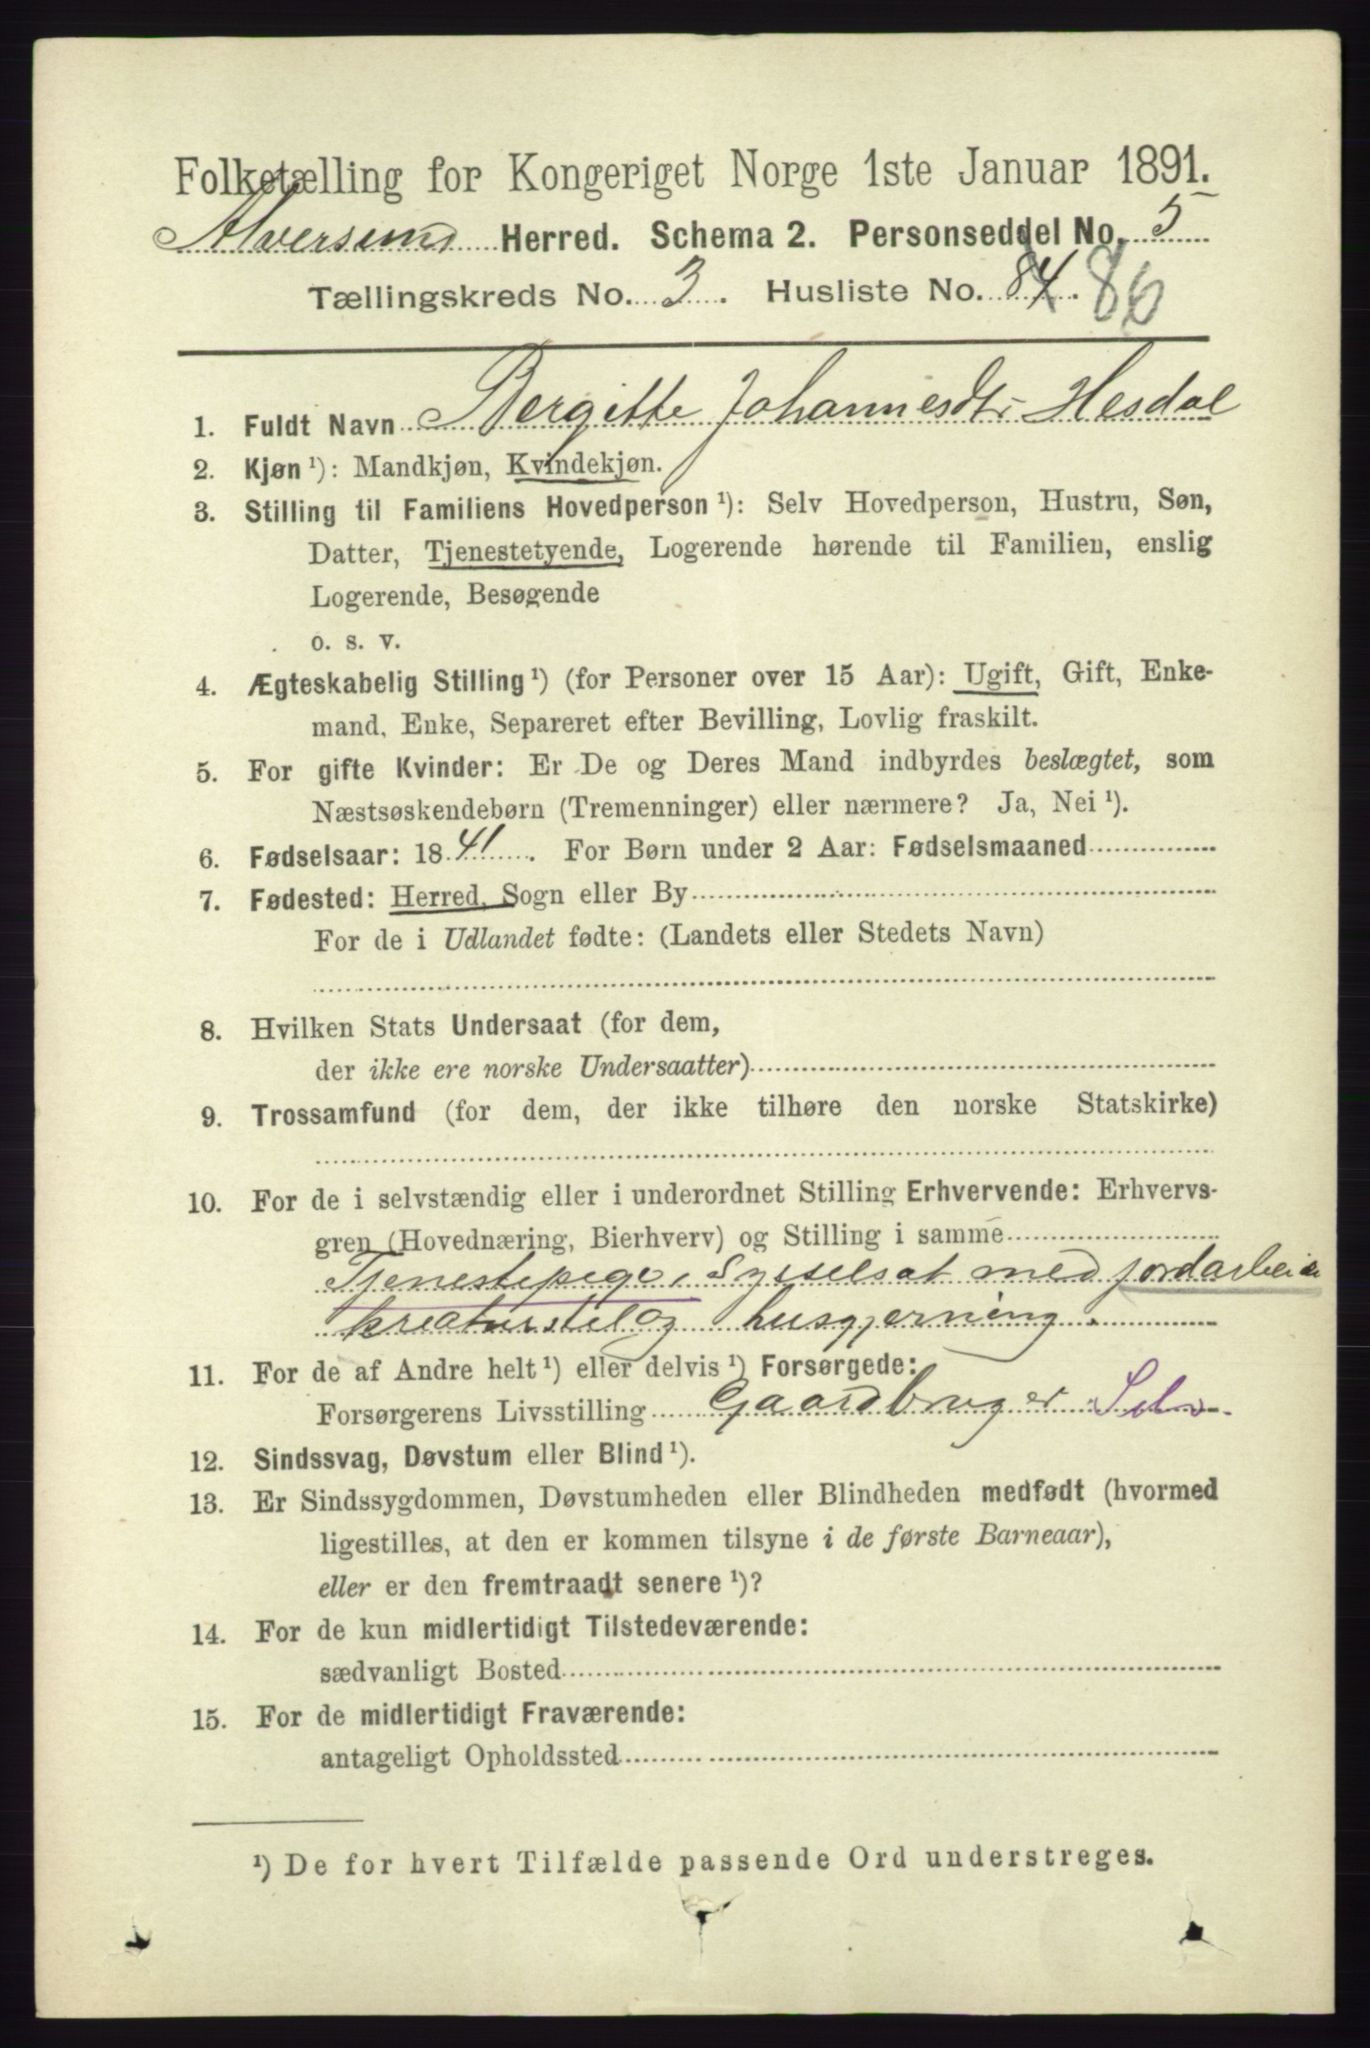 Folketælling for Kongeriget Norge 1ste Januar 1891.
Alversund Herred. Schema 2. Personseddel No. 5
Tællingskreds No. 3. Husliste No. 84. 86
1. Fuldt Navn Bergitte Johannesdtr Hesdal
2. Kjøn ¹): Mandkjøn, Kvindekjøn.
3. Stilling til Familiens Hovedperson ¹): Selv Hovedperson, Hustru, Søn,
Datter, Tjenestetyende, Logerende hørende til Familien, enslig
Logerende, Besøgende
o. s. v.
4. Ægteskabelig Stilling ¹) (for Personer over 15 Aar): Ugift, Gift, Enke-
mand, Enke, Separeret efter Bevilling, Lovlig fraskilt.
5. For gifte Kvinder: Er De og Deres Mand indbyrdes beslægtet, som
Næstsøskendebørn (Tremenninger) eller nærmere? Ja, Nei ¹).
6. Fødselsaar: 1841. For Børn under 2 Aar: Fødselsmaaned
7. Fødested: Herred, Sogn eller By
For de i Udlandet fødte: (Landets eller Stedets Navn)
8. Hvilken Stats Undersaat (for dem,
der ikke ere norske Undersaatter)
9. Trossamfund (for dem, der ikke tilhøre den norske Statskirke)
10. For de i selvstændig eller i underordnet Stilling Erhvervende: Erhvervs-
gren (Hovednæring, Bierhverv) og Stilling i samme
Tjenestepige, Sysselsat med jordarbeide
kreaturstel og husgjerning.
11. For de af Andre helt ¹) eller delvis ¹) Forsørgede:
Forsørgerens Livsstilling Gaardbruger Selv.
12. Sindssvag, Døvstum eller Blind ¹).
13. Er Sindssygdommen, Døvstumheden eller Blindheden medfødt (hvormed
ligestilles, at den er kommen tilsyne i de første Barneaar),
eller er den fremtraadt senere ¹)?
14. For de kun midlertidigt Tilstedeværende:
sædvanligt Bosted
15. For de midlertidigt Fraværende:
antageligt Opholdssted
¹) De for hvert Tilfælde passende Ord understreges.